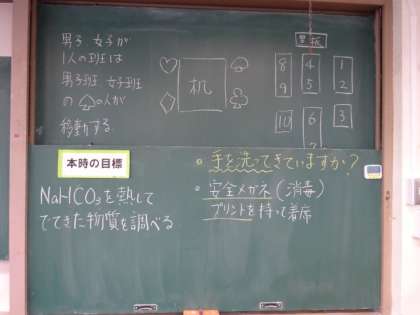 男子 女子が
1人の班は
男子班 女子班
の♤の人が
移動する
♡
♢
机
♤
♧
黒板
8
9
10
4
5
6
7
1
2
3
本時の目標
NaHCO₃を熱して
でてきた物質を調べる
• 手を洗ってきていますか?
• 安全メガネ(消毒)
プリントを持って着席